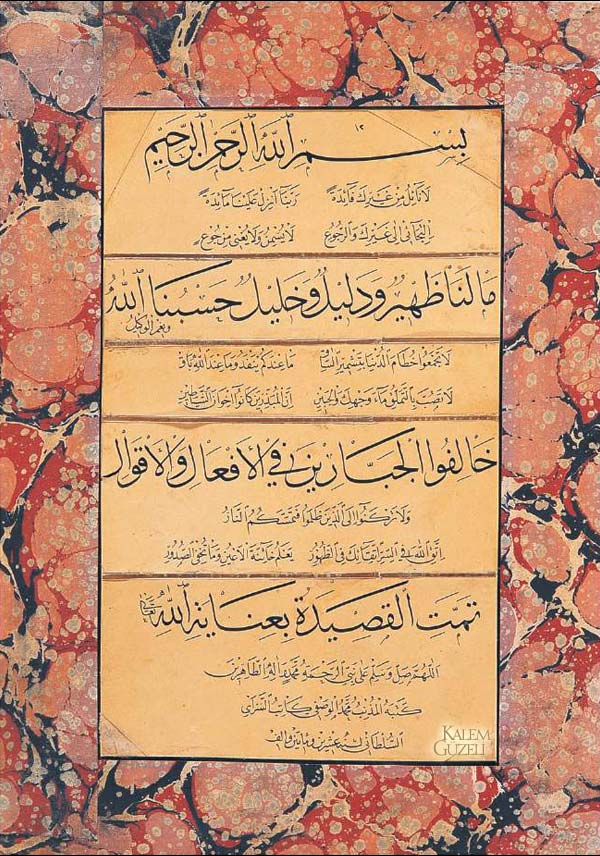 بسم الله الرحمن الرحيم
لا نائل من غيرك فائدة ربنا أنزل علينا مائدة
التجائي الى غيرك والرجوع لا يسمن ولا يغني من جوع
ما لنا ظهير ودليل وخليل حسبنا الله
ونعم الوكيل
لا تجمعوا حطام الدنيا بتشمير الساق ما عندكم ينفد وما عند الله باق
لا تصب بالتملق ماء وجهك والجبين ان المبذرين كانوا اخوان الشياطين
خالفوا الجبارين في الافعال والاقوال
ولا تركنوا الى الذين ظلموا فتمسكم النار
اتق الله في السر اتقائك في الظهور يعلم خائنة الاعين وما تخفي الصدور
تمت القصيدة بعناية الله تعالى
اللهم صل وسلم على نبي الرحمة محمد وآله الطاهرين
كتبه المذنب محمد الوصفي كاتب السراي
السلطاني سنة عشرين ومائتين والف
KALEM
GÜZELİ